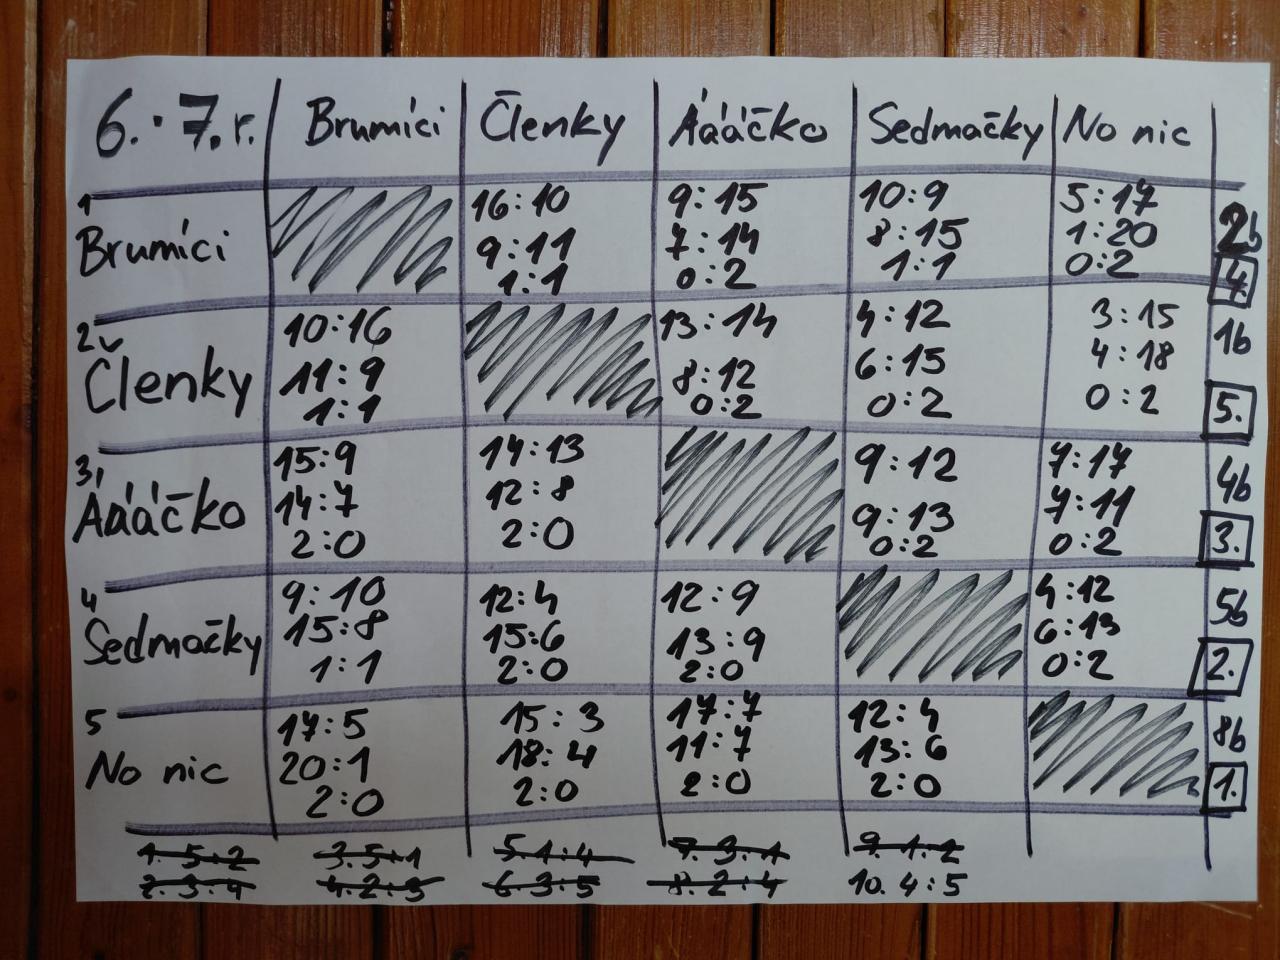 6. · 7. r. Brumíci Členky Áááčko Sedmačky No nic
1 Brumíci 16:10 9:15 10:9 5:17 2b
9:11 7:14 8:15 1:20
1:1 0:2 1:1 0:2 4.
2 Členky 10:16 13:14 4:12 3:15 1b
11:9 8:12 6:15 4:18
1:1 0:2 0:2 0:2 5.
3 Áááčko 15:9 14:13 9:12 7:17 4b
14:7 12:8 9:13 7:11
2:0 2:0 0:2 0:2 3.
4 Sedmačky 9:10 12:4 12:9 4:12 5b
15:8 15:6 13:9 6:13
1:1 2:0 2:0 0:2 2.
5 No nic 17:5 15:3 17:7 12:4 8b
20:1 18:4 11:7 13:6
2:0 2:0 2:0 2:0 1.
1. 5:2 3. 5:1 5. 1:4 7. 3:1 9. 1:2
2. 3:4 4. 2:3 6. 3:5 8. 2:4 10. 4:5